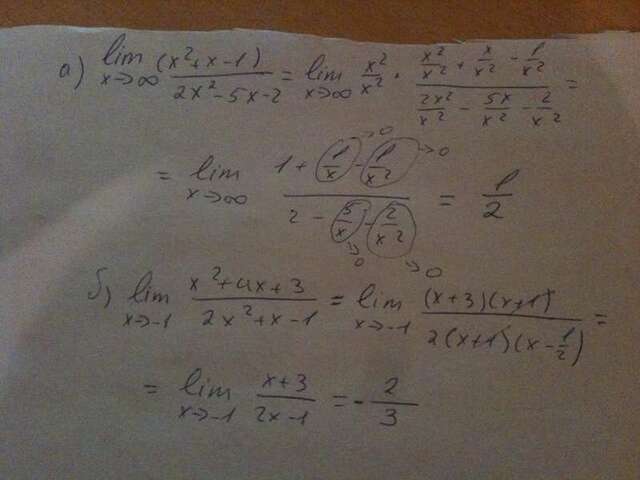 а) lim x→∞ (x²+x-1) / 2x²-5x-2 = lim x→∞ x²/x² · (x²/x² + x/x² - 1/x²) / (2x²/x² - 5x/x² - 2/x²) =
= lim x→∞ (1 + 1/x →0 - 1/x² →0) / (2 - 5/x →0 - 2/x² →0) = 1/2
б) lim x→-1 (x²+4x+3) / (2x²+x-1) = lim x→-1 (x+3)(x+1) / 2(x+1)(x-1/2) =
= lim x→-1 (x+3) / (2x-1) = -2/3